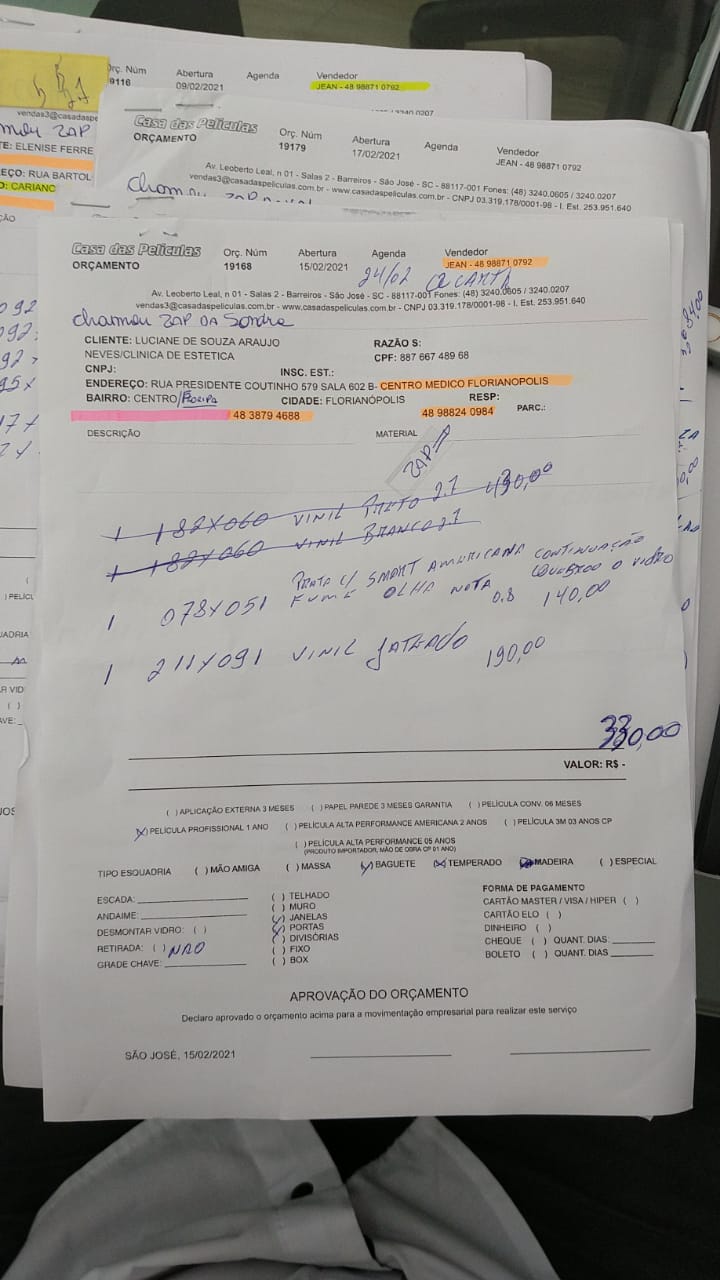 Orç. Núm Abertura Agenda Vendedor
9116 09/02/2021 JEAN - 48 98871 0792
vendas3@casadaspe
ZAP
TE: ELENISE FERRE
EÇO: RUA BARTOL
O: CARIANO
Casa das Películas Orç. Núm Abertura Agenda Vendedor
ORÇAMENTO 19179 17/02/2021 JEAN - 48 98871 0792
Av. Leoberto Leal, n 01 - Salas 2 - Barreiros - São José - SC - 88117-001 Fones: (48) 3240.0605 / 3240.0207
vendas3@casadaspeliculas.com.br - www.casadaspeliculas.com.br - CNPJ 03.319.178/0001-98 - I. Est. 253.951.640
Casa das Películas Orç. Núm Abertura Agenda Vendedor
ORÇAMENTO 19168 15/02/2021 24/02 JEAN - 48 98871 0792
Av. Leoberto Leal, n 01 - Salas 2 - Barreiros - São José - SC - 88117-001 Fones: (48) 3240.0605 / 3240.0207
vendas3@casadaspeliculas.com.br - www.casadaspeliculas.com.br - CNPJ 03.319.178/0001-98 - I. Est. 253.951.640
chamou ZAP DA Sondra
CLIENTE: LUCIANE DE SOUZA ARAUJO RAZÃO S:
NEVES/CLINICA DE ESTETICA CPF: 887 667 489 68
CNPJ: INSC. EST.:
ENDEREÇO: RUA PRESIDENTE COUTINHO 579 SALA 602 B- CENTRO MEDICO FLORIANOPOLIS
BAIRRO: CENTRO/Floripa CIDADE: FLORIANÓPOLIS RESP:
48 3879 4688 48 98824 0984 PARC.:
DESCRIÇÃO MATERIAL
ZAP
1 182X060 VINIL PRETO 2.7 430,00
1 182X060 VINIL BRANCO 2.7
PRATA C/ SMART AMERICANA CONTINUAÇÃO
1 078X051 FUMÊ OLHA NOTA QUEBROU O VIDRO
0.8 140,00
1 211X091 VINIL JATEADO 190,00
330,00
VALOR: R$ -
( ) APLICAÇÃO EXTERNA 3 MESES ( ) PAPEL PAREDE 3 MESES GARANTIA ( ) PELÍCULA CONV. 06 MESES
(X) PELÍCULA PROFISSIONAL 1 ANO ( ) PELÍCULA ALTA PERFORMANCE AMERICANA 2 ANOS ( ) PELÍCULA 3M 03 ANOS CP
( ) PELÍCULA ALTA PERFORMANCE 05 ANOS
(PRODUTO IMPORTADOR, MÃO DE OBRA CP 01 ANO)
TIPO ESQUADRIA ( ) MÃO AMIGA ( ) MASSA (X) BAGUETE (X) TEMPERADO (X) MADEIRA ( ) ESPECIAL
ESCADA: ( ) TELHADO FORMA DE PAGAMENTO
ANDAIME: ( ) MURO CARTÃO MASTER / VISA / HIPER ( )
DESMONTAR VIDRO: ( ) (X) JANELAS CARTÃO ELO ( )
RETIRADA: ( ) NÃO (X) PORTAS DINHEIRO ( )
GRADE CHAVE: (X) DIVISÓRIAS CHEQUE ( ) QUANT. DIAS:
( ) FIXO BOLETO ( ) QUANT. DIAS
( ) BOX
APROVAÇÃO DO ORÇAMENTO
Declaro aprovado o orçamento acima para a movimentação empresarial para realizar este serviço
SÃO JOSÉ, 15/02/2021